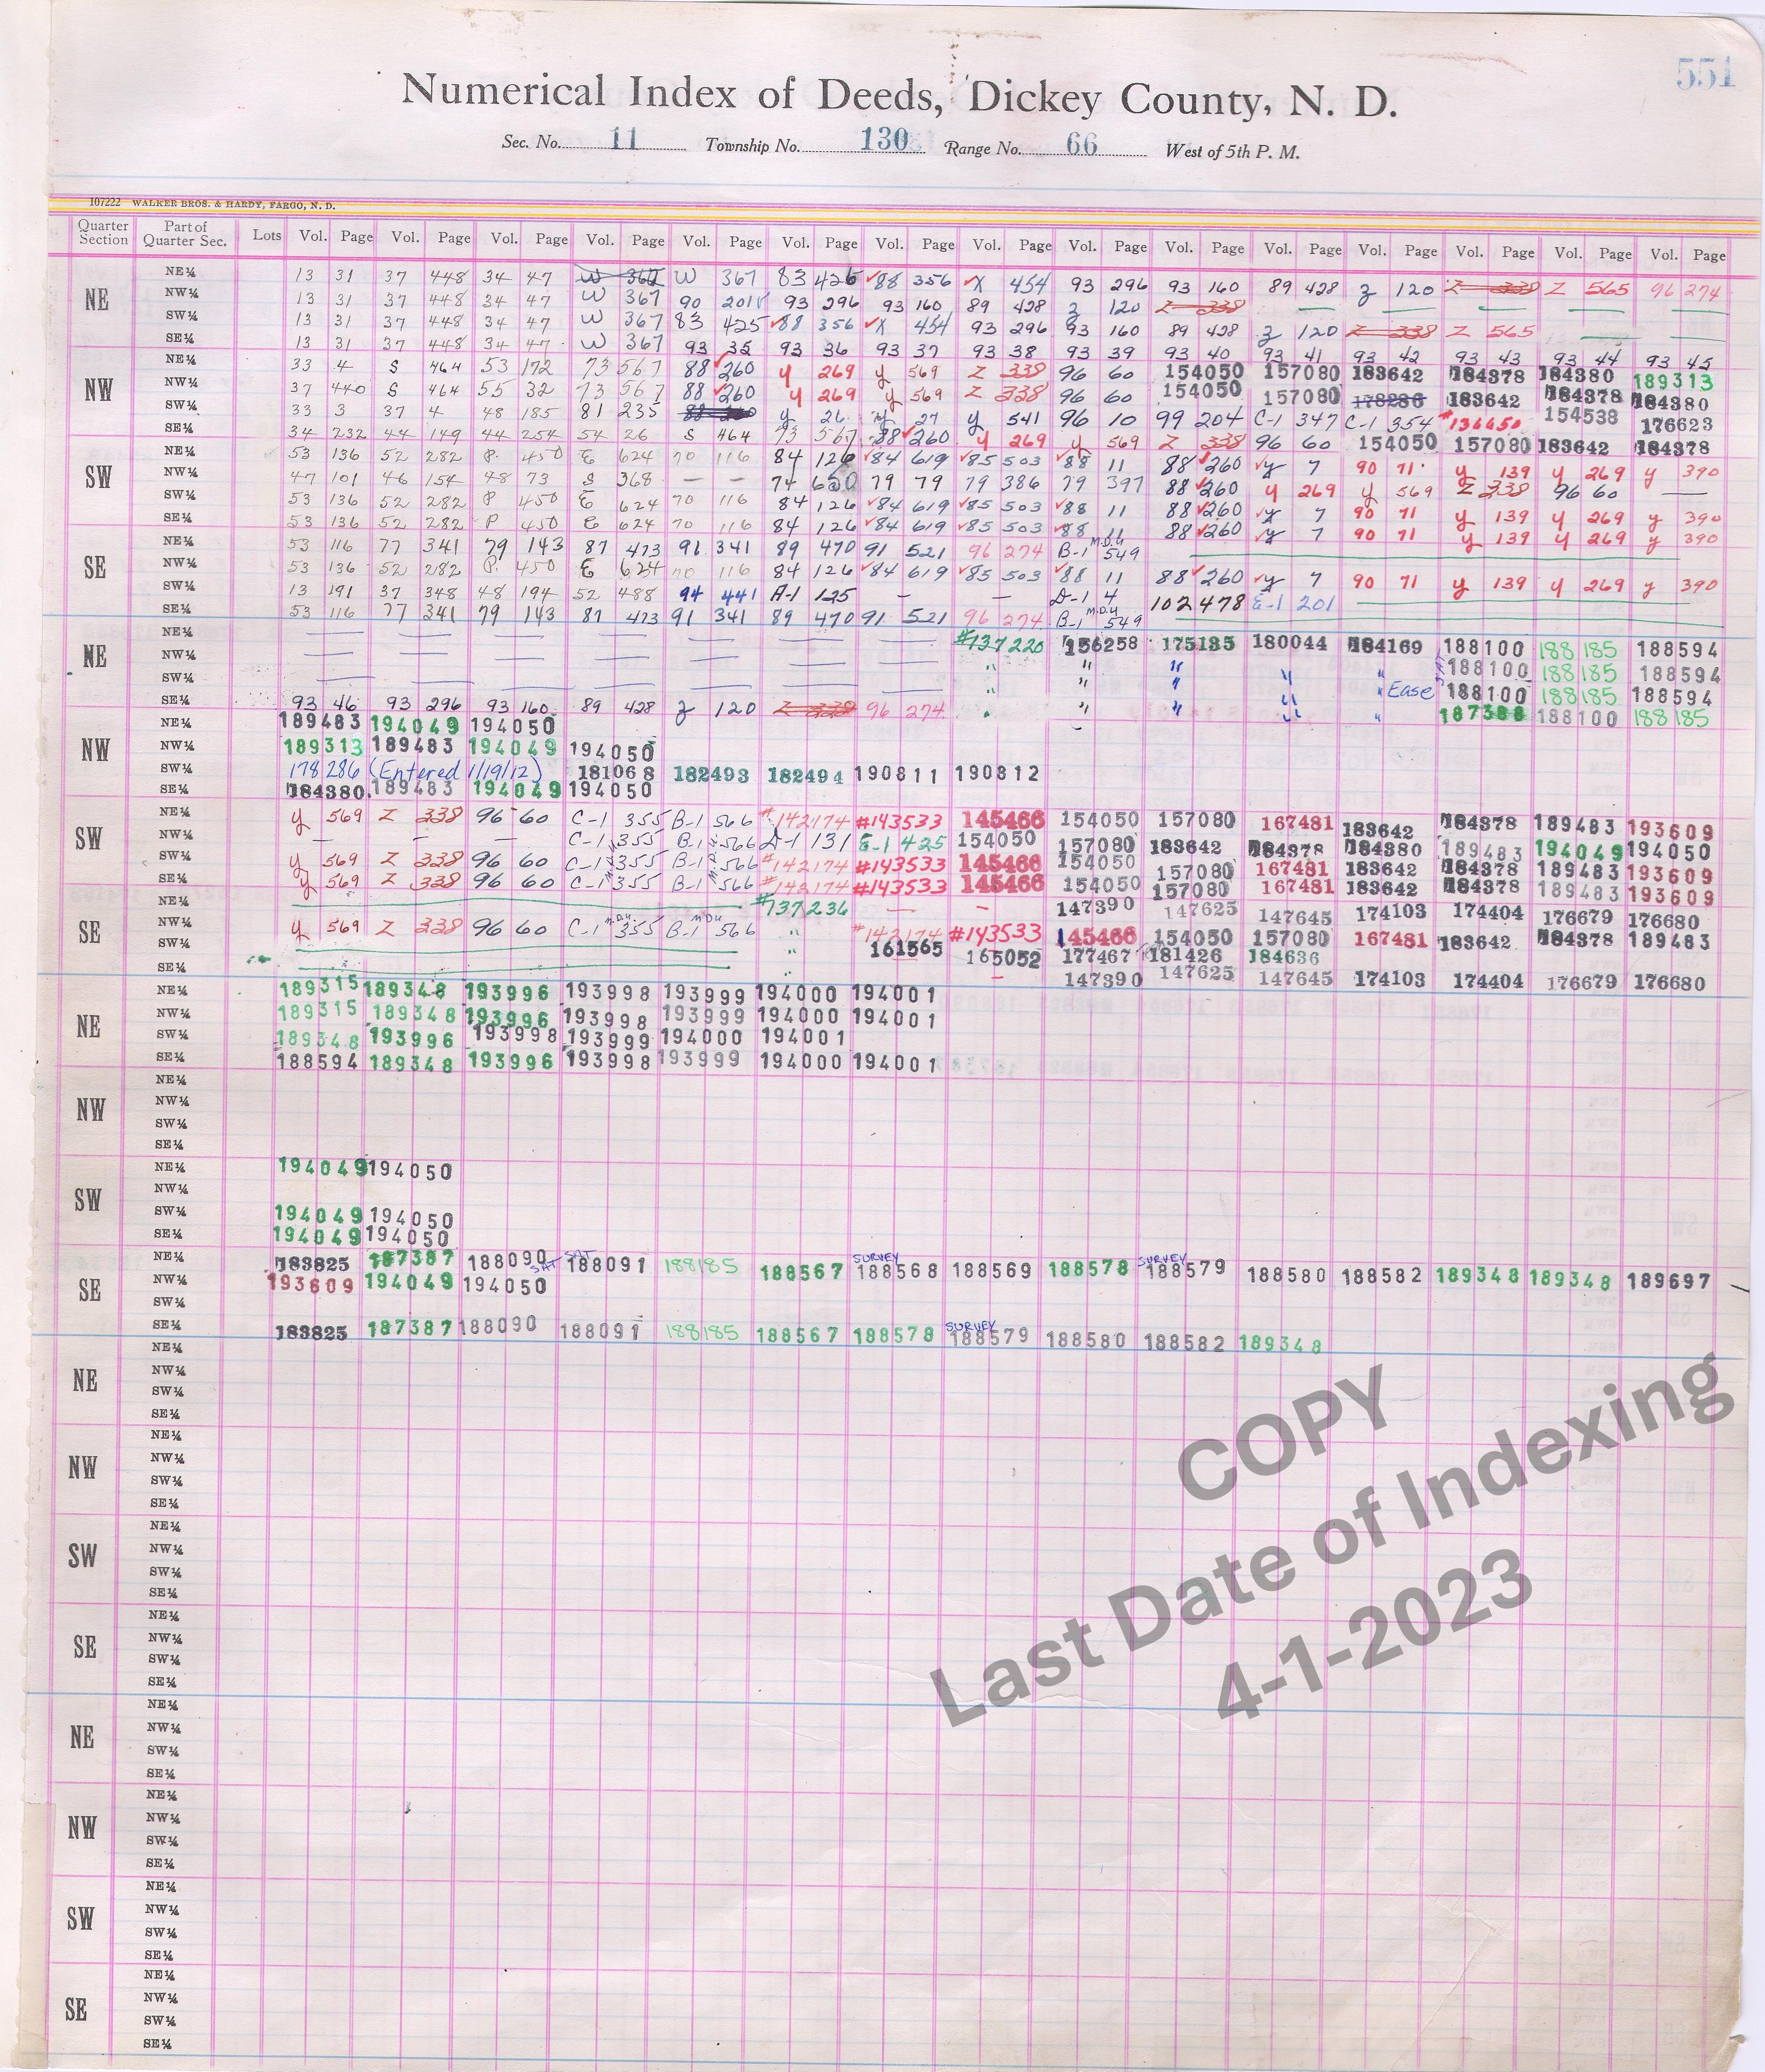 551
Numerical Index of Deeds, Dickey County, N. D.
Sec. No. 11 Township No. 130 Range No. 66 West of 5th P. M.
107222 WALKER BROS. & HARDY, FARGO, N. D.
Quarter Section Part of Quarter Sec. Lots Vol. Page Vol. Page Vol. Page Vol. Page Vol. Page Vol. Page Vol. Page Vol. Page Vol. Page Vol. Page Vol. Page Vol. Page Vol. Page Vol. Page Vol. Page
NE
NE¼ 13 31 37 448 34 47 W 367 W 367 83 426 88 356 X 454 93 296 93 160 89 428 Z 120 Z 338 Z 565 96 274
NW¼ 13 31 37 448 34 47 W 367 90 201 93 296 93 160 89 428 Z 120 Z 338
SW¼ 13 31 37 448 34 47 W 367 83 425 88 356 X 454 93 296 93 160 89 428 Z 120 Z 338 Z 565
SE¼ 13 31 37 448 34 47 W 367 93 35 93 36 93 37 93 38 93 39 93 40 93 41 93 42 93 43 93 44 93 45
NW
NE¼ 33 4 S 464 53 172 73 567 88 260 y 269 y 569 Z 338 96 60 154050 157080 183642 184378 184380 189313
NW¼ 37 440 S 464 55 32 73 567 88 260 y 269 y 569 Z 338 96 60 154050 157080 178286 183642 184378 184380
SW¼ 33 3 37 4 48 185 81 235 88 260 y 26 y 27 y 541 96 10 99 204 C-1 347 C-1 354 #136650 154538 176623
SE¼ 34 232 44 149 44 254 54 26 S 464 73 567 88 260 y 269 y 569 Z 338 96 60 154050 157080 183642 184378
SW
NE¼ 53 136 52 282 P 450 E 624 70 116 84 126 84 619 85 503 88 11 88 260 y 7 90 71 y 139 y 269 y 390
NW¼ 47 101 46 154 48 73 S 368 — — 74 650 79 79 79 386 79 397 88 260 y 269 y 569 Z 338 96 60 —
SW¼ 53 136 52 282 P 450 E 624 70 116 84 126 84 619 85 503 88 11 88 260 y 7 90 71 y 139 y 269 y 390
SE¼ 53 136 52 282 P 450 E 624 70 116 84 126 84 619 85 503 88 11 88 260 y 7 90 71 y 139 y 269 y 390
SE
NE¼ 53 116 77 341 79 143 87 473 91 341 89 470 91 521 96 274 B-1 M.D.U 549
NW¼ 53 136 52 282 P. 450 E 624 70 116 84 126 84 619 85 503 88 11 88 260 y 7 90 71 y 139 y 269 y 390
SW¼ 13 191 37 348 48 194 52 488 94 441 A-1 125 — — D-1 4 102 478 E-1 201
SE¼ 53 116 77 341 79 143 87 473 91 341 89 470 91 521 96 274 B-1 M.D.U 549
NE
NE¼ #137220 156258 175135 180044 184169 188100 188185 188594
NW¼ " " " " " 188100 188185 188594
SW¼ " " " " " Ease 188100 188185 188594
SE¼ 93 46 93 296 93 160 89 428 Z 120 Z 338 96 274 " " " " " 187388 188100 188185
NW
NE¼ 189483 194049 194050
NW¼ 189313 189483 194049 194050
SW¼ 178286 (Entered 1/19/12) 181068 182493 182494 190811 190812
SE¼ 184380 189483 194049 194050
SW
NE¼ y 569 Z 338 96 60 C-1 355 B-1 566 #142174 #143533 145466 154050 157080 167481 183642 184378 189483 193609
NW¼ — — — C-1 355 B-1 566 D-1 131 E-1 425 154050 157080 183642 184378 184380 189483 194049 194050
SW¼ y 569 Z 338 96 60 C-1 355 B-1 566 #142174 #143533 145466 154050 157080 167481 183642 184378 189483 193609
SE¼ y 569 Z 338 96 60 C-1 355 B-1 566 #142174 #143533 145466 154050 157080 167481 183642 184378 189483 193609
SE
NE¼ #137236 — — 147390 147625 147645 174103 174404 176679 176680
NW¼ y 569 Z 338 96 60 C-1 M.D.U. 355 B-1 MDU 566 " #142174 #143533 145466 154050 157080 167481 183642 184378 189483
SW¼ " 161565 165052 177467 181426 184636
SE¼ " — 147390 147625 147645 174103 174404 176679 176680
NE
NE¼ 189315 189348 193996 193998 193999 194000 194001
NW¼ 189315 189348 193996 193998 193999 194000 194001
SW¼ 189348 193996 193998 193999 194000 194001
SE¼ 188594 189348 193996 193998 193999 194000 194001
NW
NE¼
NW¼
SW¼
SE¼
SW
NE¼ 194049 194050
NW¼
SW¼ 194049 194050
SE¼ 194049 194050
SE
NE¼ 183825 187387 188090 SAT 188091 SAT 188185 188567 SURVEY 188568 188569 188578 SURVEY 188579 188580 188582 189348 189348 189697
NW¼ 193609 194049 194050
SW¼
SE¼ 183825 187387 188090 188091 188185 188567 188578 SURVEY 188579 188580 188582 189348
NE
NE¼
NW¼
SW¼
SE¼
NW
NE¼
NW¼
SW¼
SE¼
SW
NE¼
NW¼
SW¼
SE¼
SE
NE¼
NW¼
SW¼
SE¼
NE
NE¼
NW¼
SW¼
SE¼
NW
NE¼
NW¼
SW¼
SE¼
SW
NE¼
NW¼
SW¼
SE¼
SE
NE¼
NW¼
SW¼
SE¼
COPY
Last Date of Indexing
4-1-2023